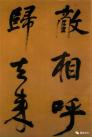 相呼
歸去來